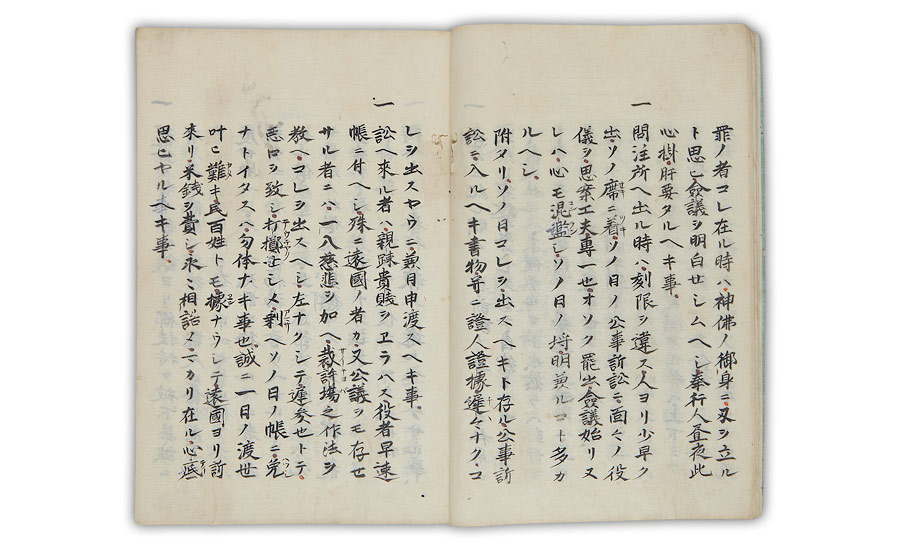 罪ノ者コレ在ル時ハ神佛ノ御身ニ刃ヲ立ル
ト思ヒ僉議シ明白セシムヘシ奉行人昼夜此
心掛肝要タルヘキ事。
一 問注所ヘ出ル時ハ刻限ヲ違ス人ヨリ少早ク
出ソノ席ニ着ソノ日ノ公事訴訟ニ面々ノ役
儀ヲ思案工夫専一也オソク罷出僉議始リヌ
レハ心モ混濫シソノ日ノ埒明兼ルコト多カ
ルヘシ
附タリソノ日コレヲ出スヘキト存ル公事訴
訟ニ入ルヘキ書物等ニ證人證據遅々ナクコ
レヲ出スヤウニ兼日申渡スヘキ事。
一 訟ヘ來ル者ハ親疎貴賤ヲヱラハス役者早速
帳ニ付ヘシ殊ニ遠國ノ者カ又公議ヲモ存セ
サル者ニハ一入慈悲ヲ加ヘ裁許場之作法ヲ
教ヘコレヲ出スヘシ左ナクシテ遅参也トテ
悪口ヲ致シ打擲セシメ剰ヘソノ日ノ帳ニ
ナトイタスハ勿体ナキ事也誠ニ一日ノ渡世
叶ヒ難キ民百姓トモ據ナウシテ遠國ヨリ訴
來リ米銭ヲ費シ永々相詰メカリ在ル心底
思ヒヤルヘキ事。